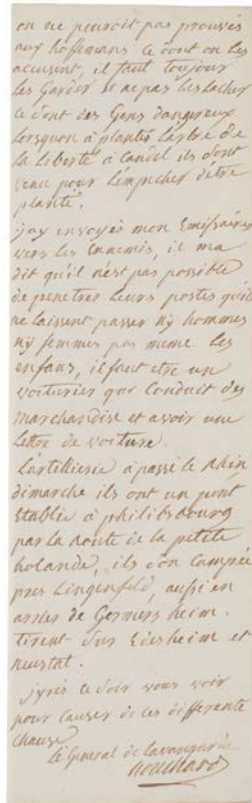 on ne pouroit pas prouvés
aux hoffemans ce dont on les
accusent, il faut toujour
les garder et ne pas les lacher
ce sont des gens dangereux
lorsquon à plantés l'arbre de
la liberté à candel ils sont
venu pour l'empecher detre
planté.
j'ay envoyés mon Emissaire
vers les Ennemis, il ma
dit qu'il n'est pas possible
de penetrer leurs postes quils
ne laissent passer ny hommes
ny femmes pas meme les
enfans, il faut etre un
voiturier qui conduit des
marchandise et avoir une
Lettre de voiture.
L'artillierie à passé le Rhin
dimarche ils ont un pont
Etablie à philibsbourg
par la Route de la petite
holande, ils son campée
pres Lingenfeld, aussi en
arrier de Germersheim.
tirent sur Edesheim et
neustat.
j'yrés ce soir vous voir
pour causer de ces differente
chause
le General de Lavangarde
houchard